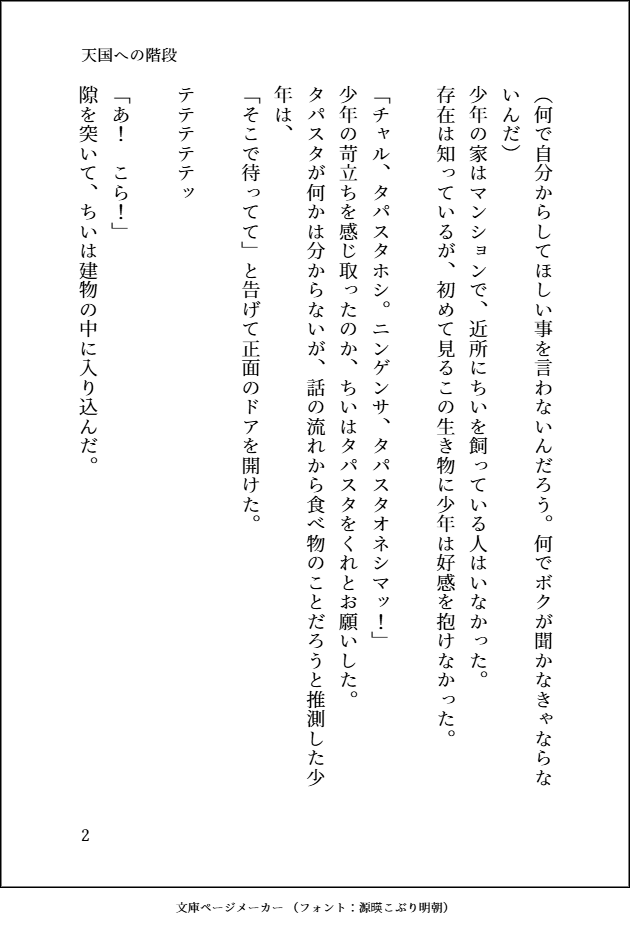 天国への階段
（何で自分からしてほしい事を言わないんだろう。何でボクが聞かなきゃならな
いんだ）
少年の家はマンションで、近所にちいを飼っている人はいなかった。
存在は知っているが、初めて見るこの生き物に少年は好感を抱けなかった。
「チャル、タパスタホシ。ニンゲンサ、タパスタオネシマッ！」
少年の苛立ちを感じ取ったのか、ちいはタパスタをくれとお願いした。
タパスタが何かは分からないが、話の流れから食べ物のことだろうと推測した少
年は、
「そこで待ってて」と告げて正面のドアを開けた。
テテテテテッ
「あ！　こら！」
隙を突いて、ちいは建物の中に入り込んだ。
2
文庫ページメーカー（フォント：源暎こぶり明朝）